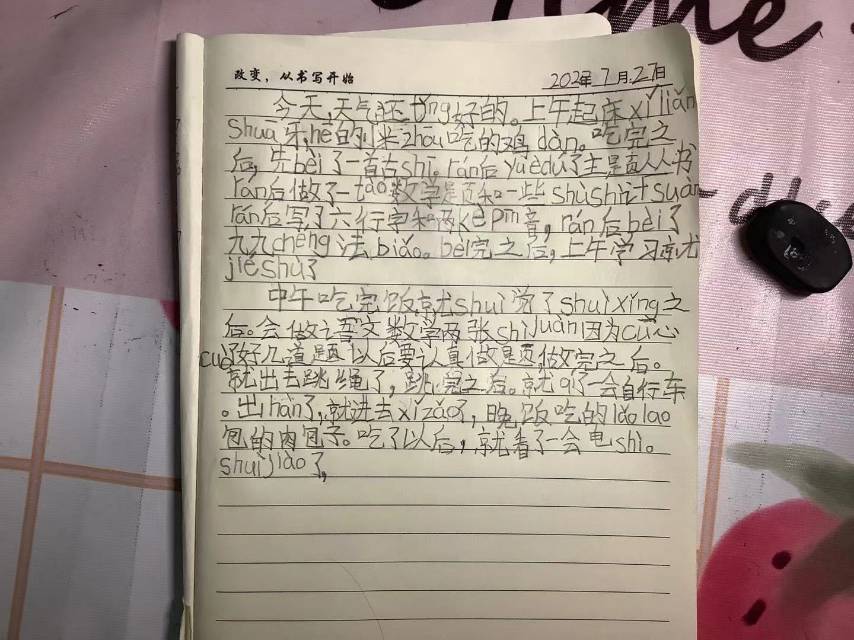 ime
改变，从书写开始
202年7月27日
今天，天气还tǐng好的。上午起床xǐ liǎn
Shuā牙，hē的小米zhōu吃的鸡dàn。吃完之
后，先bèi了一首古shī。rán后yuèdú了主是直人人书
rán后做了一tào数学是页和一些shùshì计suàn
rán后写了六行字和两kè pīn音，rán后bèi了
九九chéng法biǎo。bèi完之后，上午学习京尤
jiéshù了
中午吃完饭，就shuì觉了shuì xǐng之
后。会做语文数学两张shì juàn因为cū心
cuò好几道是页以后要认真做是页，做完之后。
就出去跳绳了，跳完之后。就qí了一会自行车
。出hàn了，就进去xǐ zǎo了，晚饭吃的lǎo lao
包的肉包子。吃了以后，就看了一会电shì。
shuì jiào了，